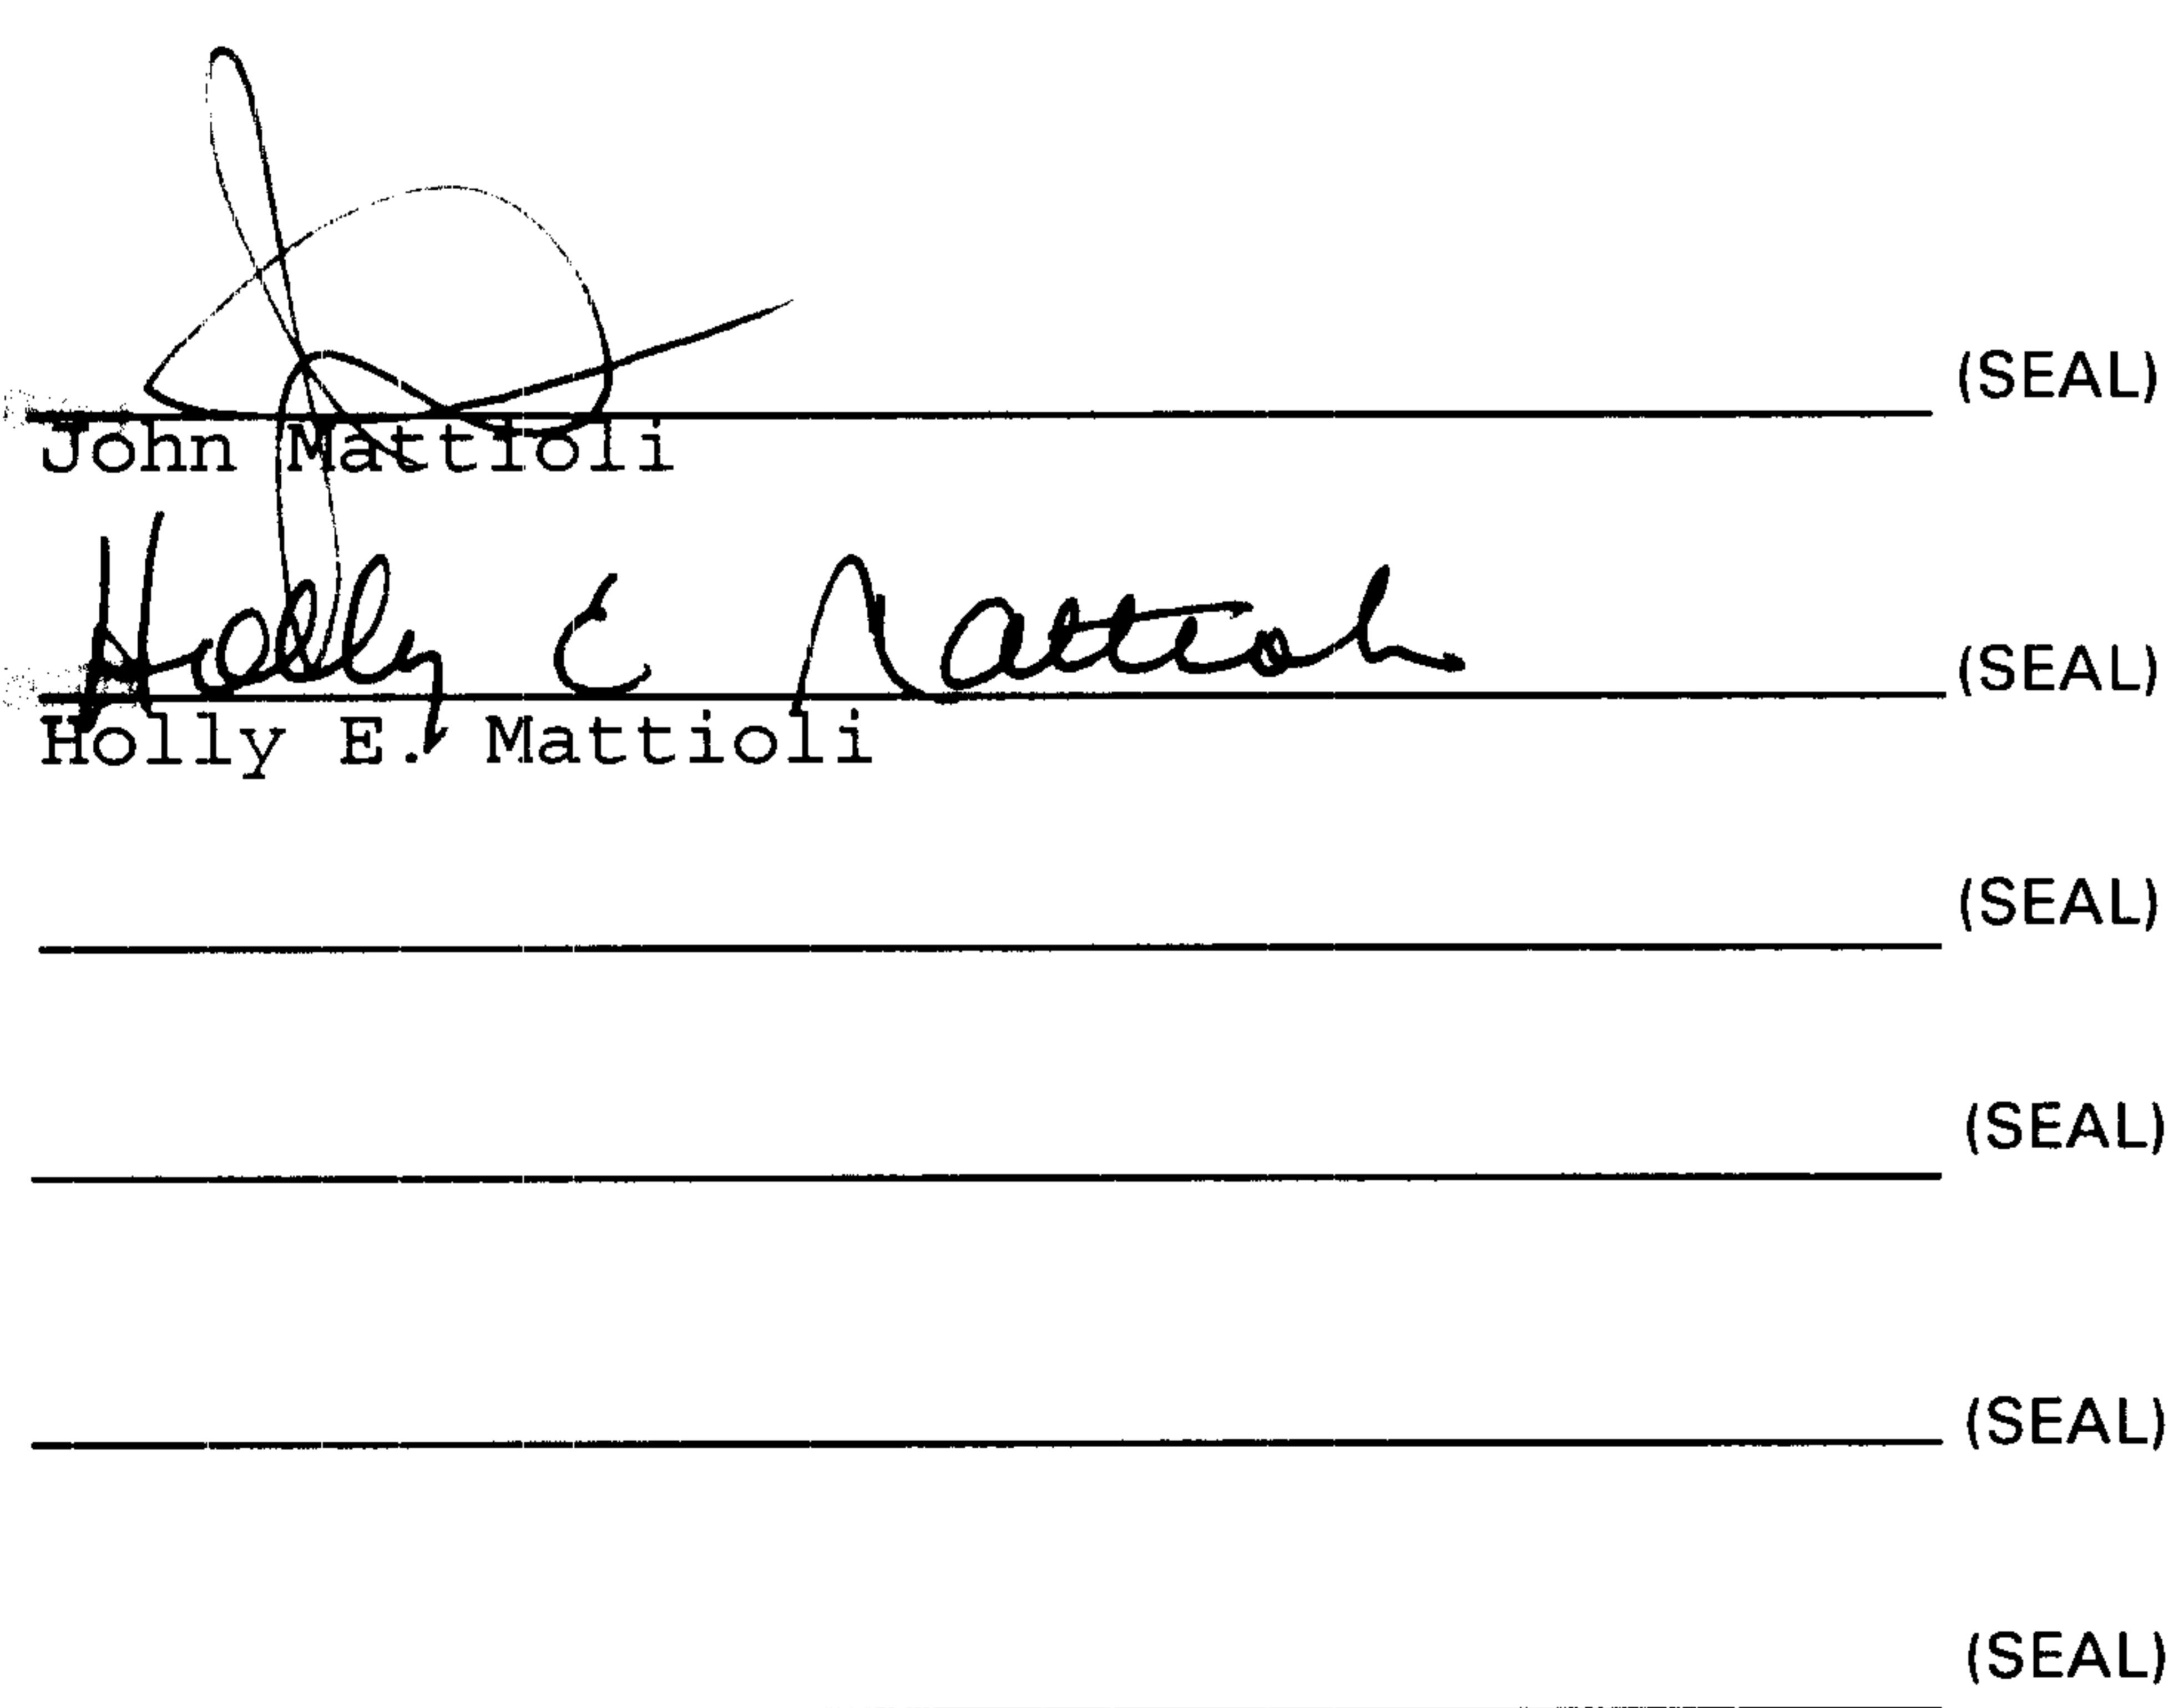 (SEAL)
John Mattioli
Holly E Mattioli (SEAL)
Holly E. Mattioli
(SEAL)
(SEAL)
(SEAL)
(SEAL)